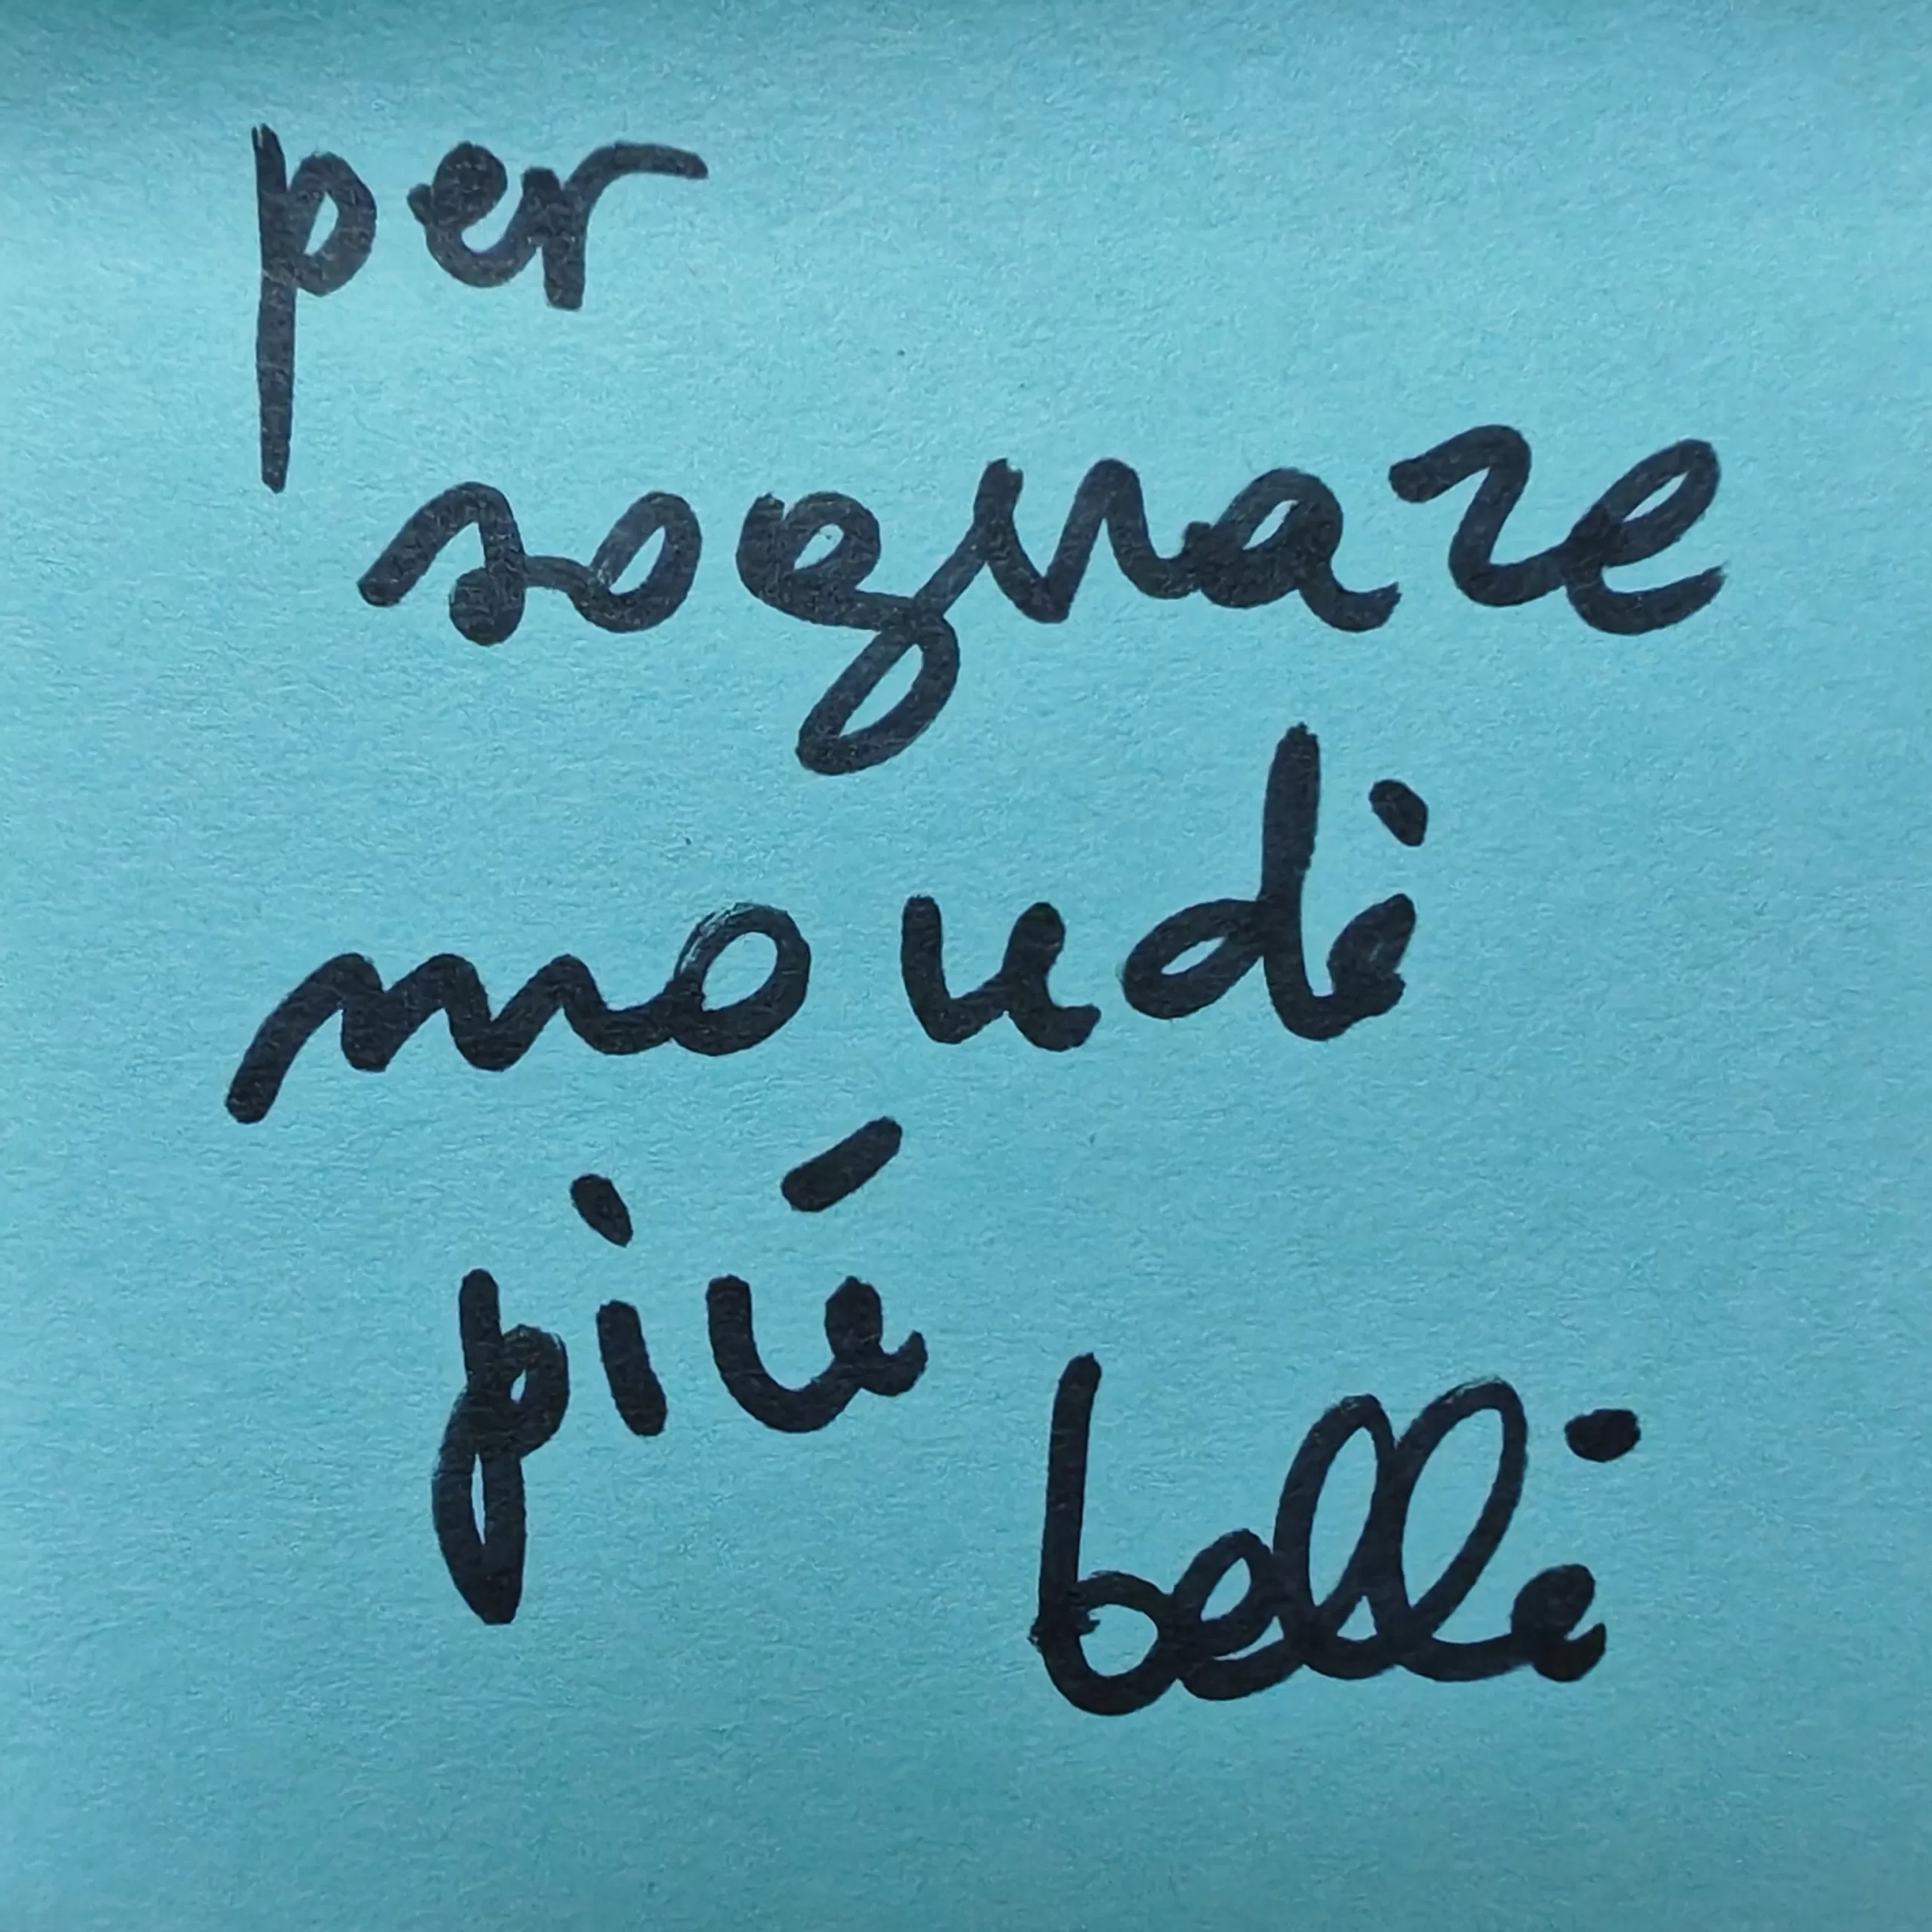 per
sognare
mondi
piú
belli